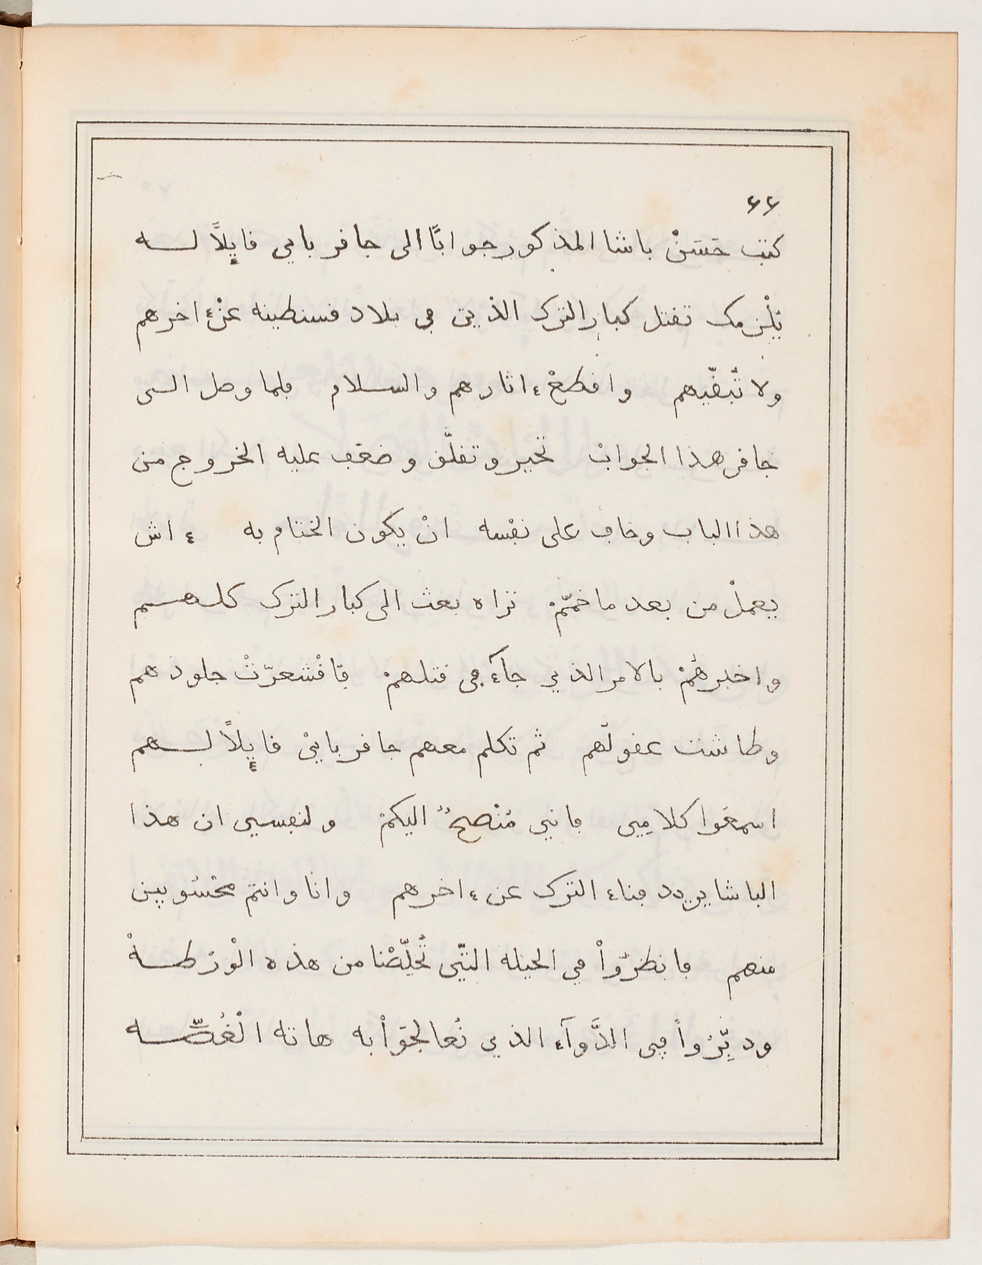 ٦٦
كتب حَسَنْ باشا المذكور جوابًا الى جافر باي قايلًا له
يلْزمك تقتل كبار الترك الذين في بلاد قسنطينه عنْ ءاخرهم
ولا تْبقّيهم واقطعْ ءاثارهم والسلام فلما وصل الى
جافر هذا الجوابْ تحير وتقلّق وضعف عليه الخروج من
هذا الباب وخاف على نفْسه انْ يكون الختام به ءاش
يعملْ من بعد ما خمّمْ تراه بعث الى كبار الترك كلهم
واخبرهُمْ بالامر الذي جآءَ في قتلهمْ فافْشعرّتْ جلوذهم
وطاشت عقولهم ثم تكلم معهم جافر بايْ قايلًا لهم
اسمعَوا كلامِيى فاني مُنْصحٌ اليكمْ ولنفسيى ان هذا
الباشا يريد فناء الترك عن ءاخرهم وانا وانتم محْسُوبين
منهم فانظرُواْ في الحيله التّي تُخلّصْنا من هذه الْورْطهْ
ودبّرُواْ فِيى الدَّوآء الذي نُعالجوْا به هاته الْغُصّه